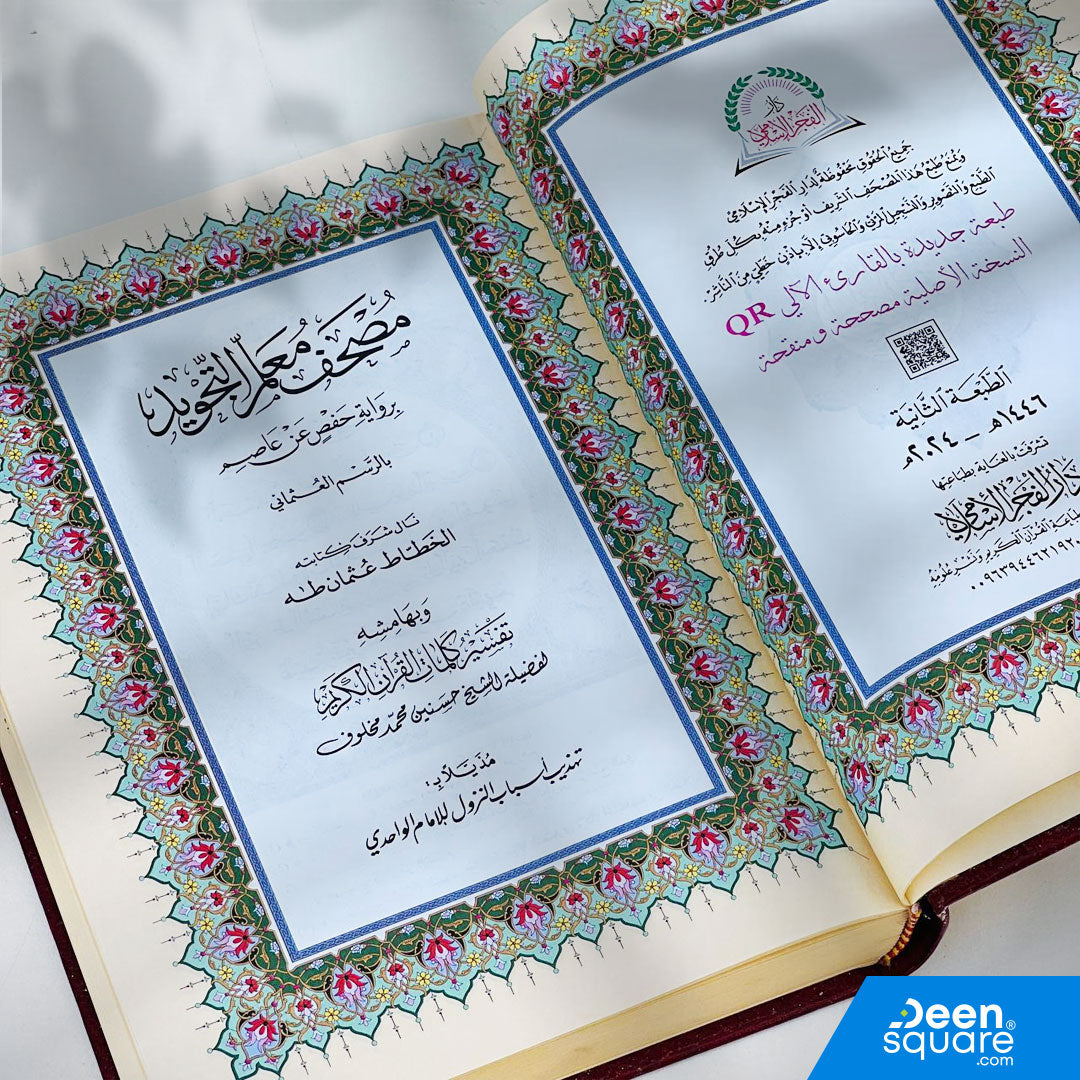 دار
الفجر الإسلامي
جميع الحقوق محفوظة لدار الفجر الإسلامي
ويمنع طبع هذا المصحف الشريف أو جزء منه بكل طرق
الطبع والتصوير والتسجيل المرئي والحاسوبي إلا بإذن خطي من الناشر.
طبعة جديدة بالقارئ الآلي QR
النسخة الأصلية مصححة ومنقحة
الطبعة الثانية
١٤٤٦هـ - ٢٠٢٤م
تشرفت بالعناية بطباعتها
دار الفجر الإسلامي
لطباعة القرآن الكريم ونشر علومه
مُصْحَفُ مُعَلِّمِ التَّجْوِيدِ
بِرِوَايَةِ حَفْصٍ عَنْ عَاصِمٍ
بالرَّسْمِ العُثماني
نال شرف كتابته
الخطاط عثمان طه
وبهامشه
تفسير كلمات القرآن الكريم
لفضيلة الشيخ حسنين محمد مخلوف
مُذَيَّلاً بِ:
تهذيب أسباب النزول للإمام الواحدي
Deen
square®
.com